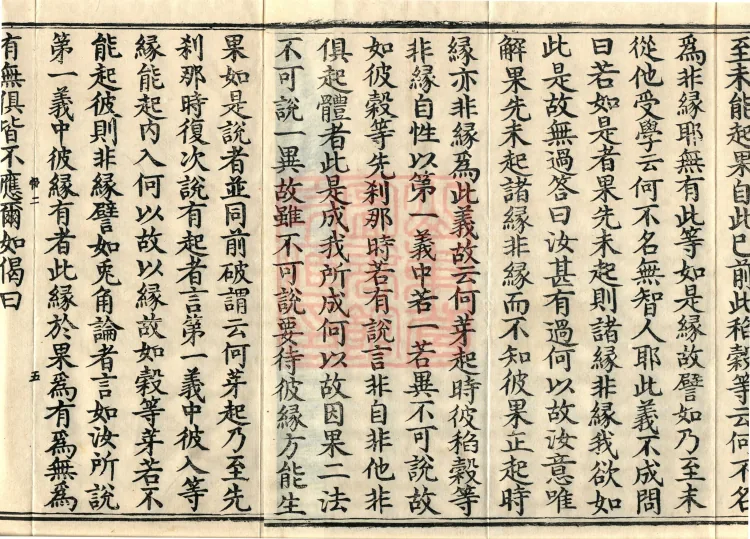 至未能起果自此已前此稻穀等云何不名
為非緣耶無有此等如是緣故譬如乃至未
從他受學云何不名無智人耶此義不成問
曰若如是者果先未起則諸緣非緣我欲如
此是故無過答曰汝甚有過何以故汝意唯
解果先未起諸緣非緣而不知彼果正起時
緣亦非緣為此義故云何芽起時彼稻穀等
非緣自性以第一義中若一若異不可說故
如彼穀等先剎那時若有說言非自非他非
俱起體者此是成我所成何以故因果二法
不可說一異故雖不可說要待彼緣方能生
果如是說者並同前破謂云何芽起乃至先
剎那時復次說有起者言第一義中彼入等
緣能起內入何以故以緣故如穀等芽若不
能起彼則非緣譬如兎角論者言如汝所說
第一義中彼緣有者此緣於果為有為無為
帝二
五
有無俱皆不應爾如偈曰